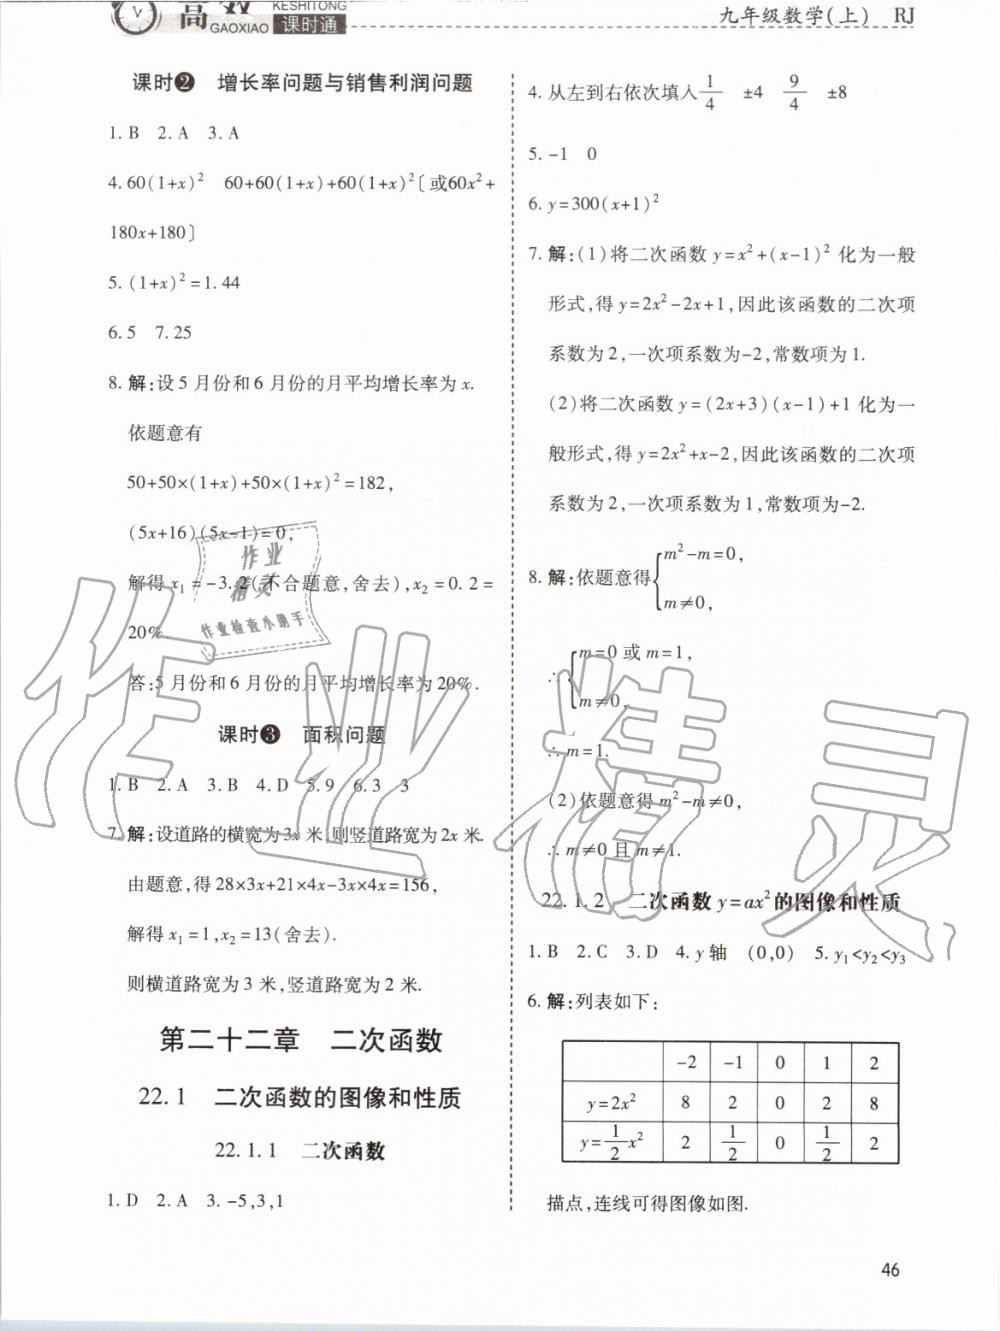 高效
GAOXIAO
KESHITONG
课时通
九年级数学(上) RJ
课时❷ 增长率问题与销售利润问题
1. B 2. A 3. A
4. 60(1+x)² 60+60(1+x)+60(1+x)²〔或60x²+
180x+180〕
5. (1+x)²=1.44
6. 5 7. 25
8. 解:设5月份和6月份的月平均增长率为x.
依题意有
50+50×(1+x)+50×(1+x)²=182,
(5x+16)(5x-1)=0,
解得x₁=-3.2(不合题意,舍去),x₂=0.2=
20%.
答:5月份和6月份的月平均增长率为20%.
课时❸ 面积问题
1. B 2. A 3. B 4. D 5. 9 6. 3 3
7. 解:设道路的横宽为3x米,则竖道路宽为2x米.
由题意,得28×3x+21×4x-3x×4x=156,
解得x₁=1,x₂=13(舍去).
则横道路宽为3米,竖道路宽为2米.
第二十二章 二次函数
22.1 二次函数的图像和性质
22.1.1 二次函数
1. D 2. A 3. -5,3,1
4. 从左到右依次填入1/4 ±4 9/4 ±8
5. -1 0
6. y=300(x+1)²
7. 解:(1)将二次函数y=x²+(x-1)²化为一般
形式,得y=2x²-2x+1,因此该函数的二次项
系数为2,一次项系数为-2,常数项为1.
(2)将二次函数y=(2x+3)(x-1)+1化为一
般形式,得y=2x²+x-2,因此该函数的二次项
系数为2,一次项系数为1,常数项为-2.
8. 解:依题意得{m²-m=0,
m≠0,
∴{m=0或m=1,
m≠0,
∴m=1.
(2)依题意得m²-m≠0,
∴m≠0且m≠1.
22.1.2 二次函数y=ax²的图像和性质
1. B 2. C 3. D 4. y轴 (0,0) 5. y₁<y₂<y₃
6. 解:列表如下:
-2 -1 0 1 2
y=2x² 8 2 0 2 8
y=1/2x² 2 1/2 0 1/2 2
描点,连线可得图像如图.
46
作业
精灵
作业检查小助手
作业精灵